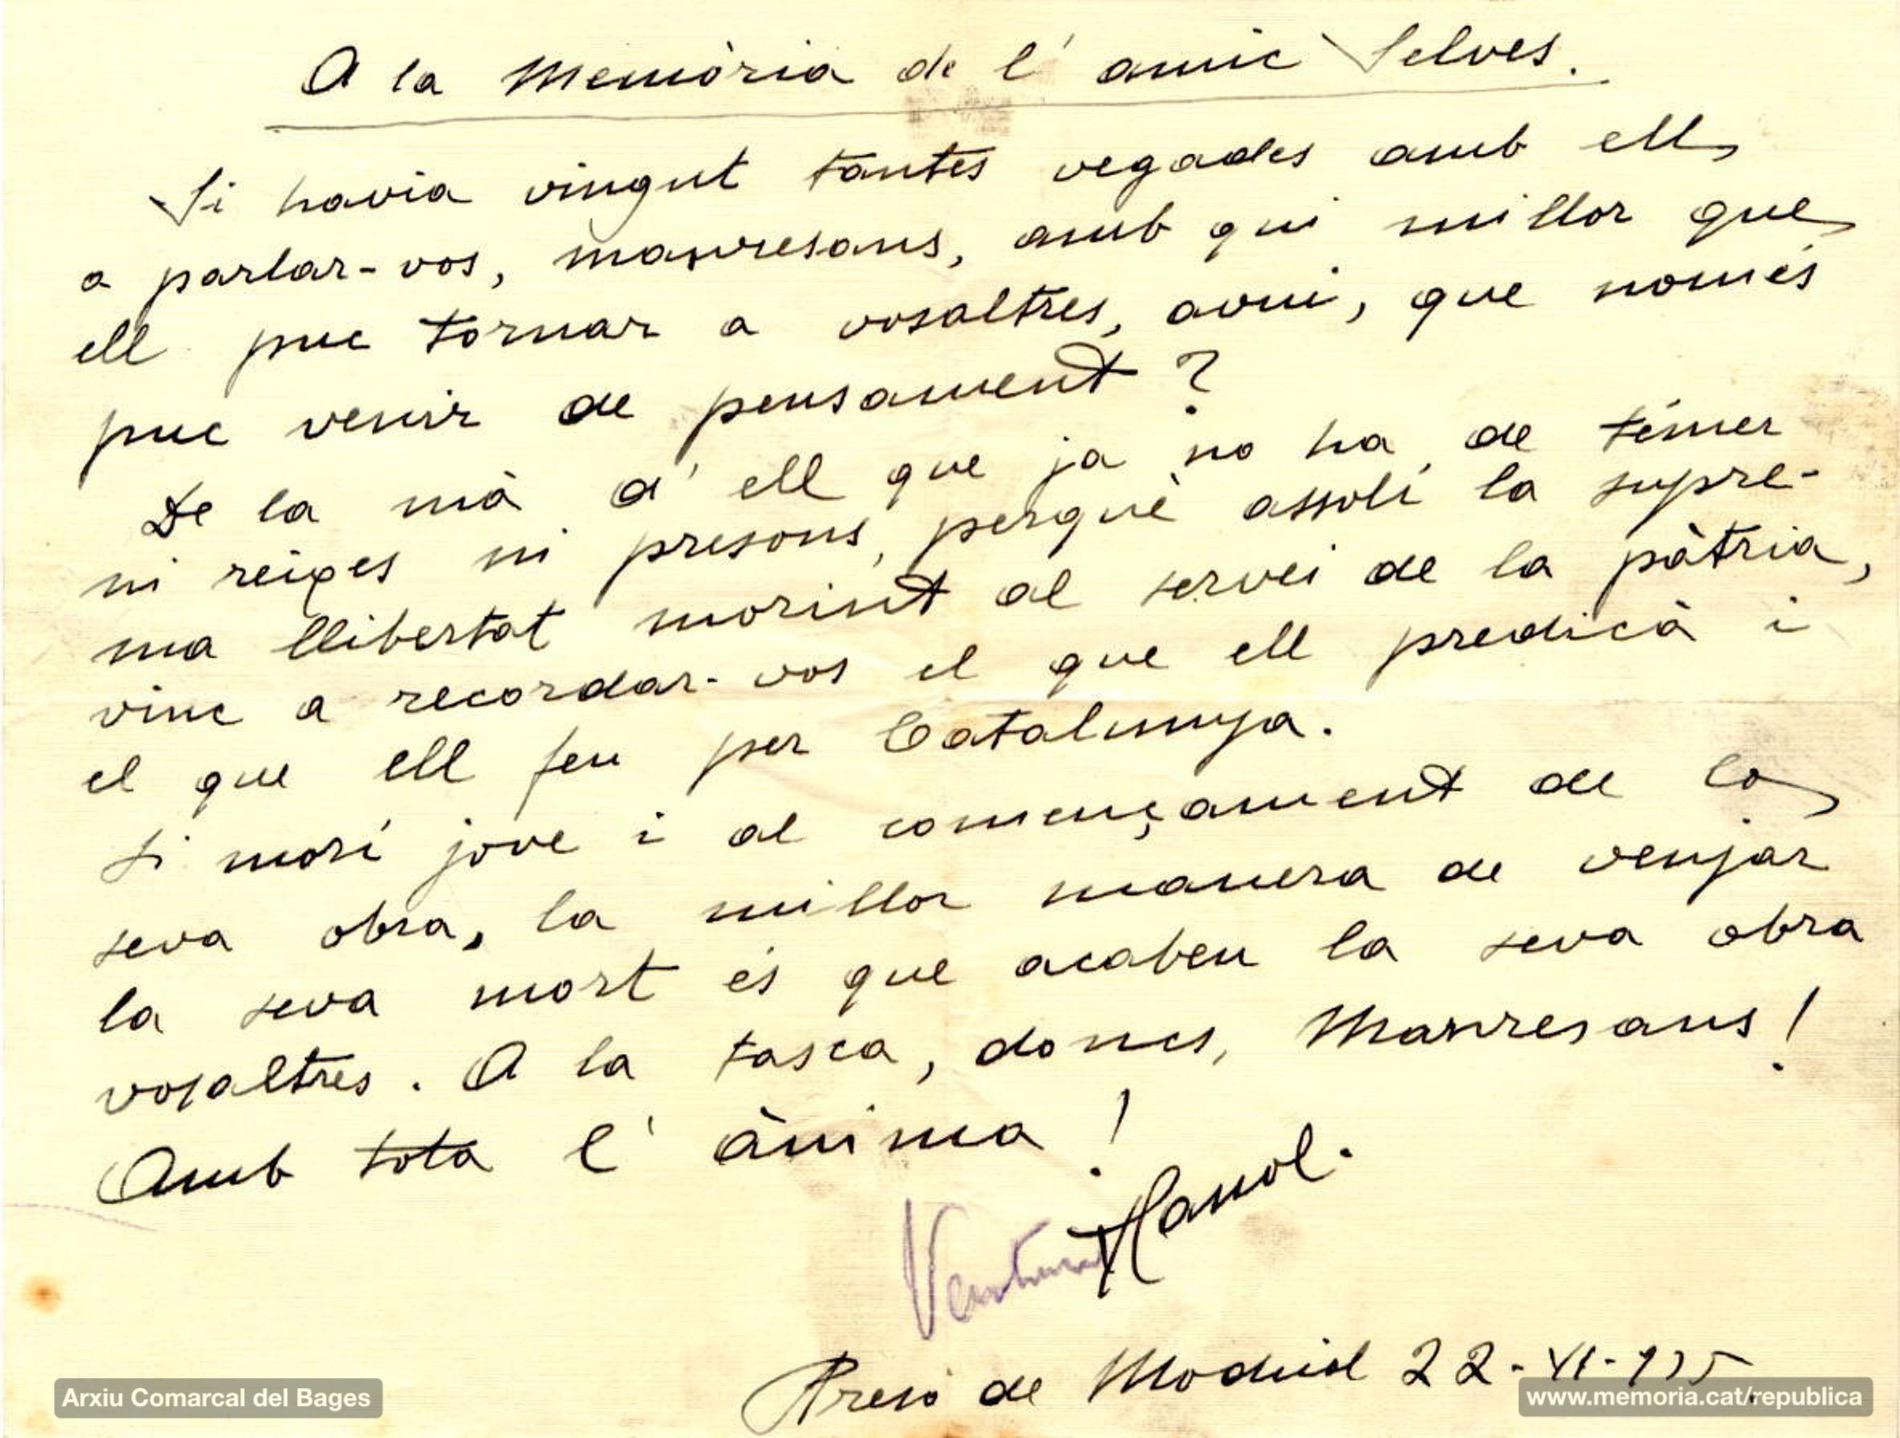 A la Memòria de l'amic Selves.
Si havia vingut tantes vegades amb ell
a parlar-vos, manresans, amb qui millor que
ell puc tornar a vosaltres, avui, que només
puc venir de pensament?
De la mà d'ell que ja no ha de témer
ni reixes ni presons, perquè assolí la supre-
ma llibertat morint al servei de la pàtria,
vinc a recordar-vos el que ell predicà i
el que ell feu per Catalunya.
Si morí jove i al començament de la
seva obra, la millor manera de venjar
la seva mort és que acabeu la seva obra
vosaltres. A la tasca, doncs, Manresans!
Amb tota l'ànima!
Ventura
Presó de Madrid 22-VI-935
Arxiu Comarcal del Bages
www.memoria.cat/republica